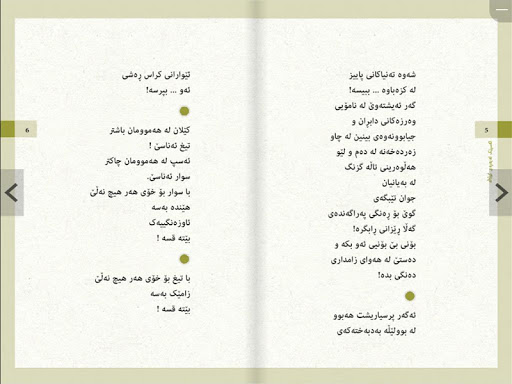 شەوە تەنیاکانی پاییز
لە کزەباوە ... ببیسە!
گەر ئەیشتەوێ لە نامۆیی
وەرزەکانی دابڕان و
جیابوونەوەی بینین لە چاو
زەردەخەنە لە دەم و لێو
هەڵوەرینی تاڵە گزنگ
لە بەیانیان
جوان تێبگەی
گوێ بۆ ڕەنگی پەراگەندەی
گەڵا ڕێزانی ڕابگرە!
بۆنی بێ بۆنیی ئەو بکە و
دەستێ لە هەوای زامداری
دەنگی بدە!
ئەگەر پرسیاریشت هەبوو
لە بوولێڵە بەدبەختەکەی
5
ئێوارانی کراس ڕەشی
ئەو ... بپرسە!
کێلان لە هەموومان باشتر
تیغ ئەناسێ !
ئەسپ لە هەموومان چاکتر
سوار ئەناسێ.
با سوار بۆ خۆی هەر هیچ نەڵێ
هێندە بەسە
ئاوزەنگییەک
بێتە قسە !
با تیغ بۆ خۆی هەر هیچ نەڵێ
زامێک بەسە
بێتە قسە !
6